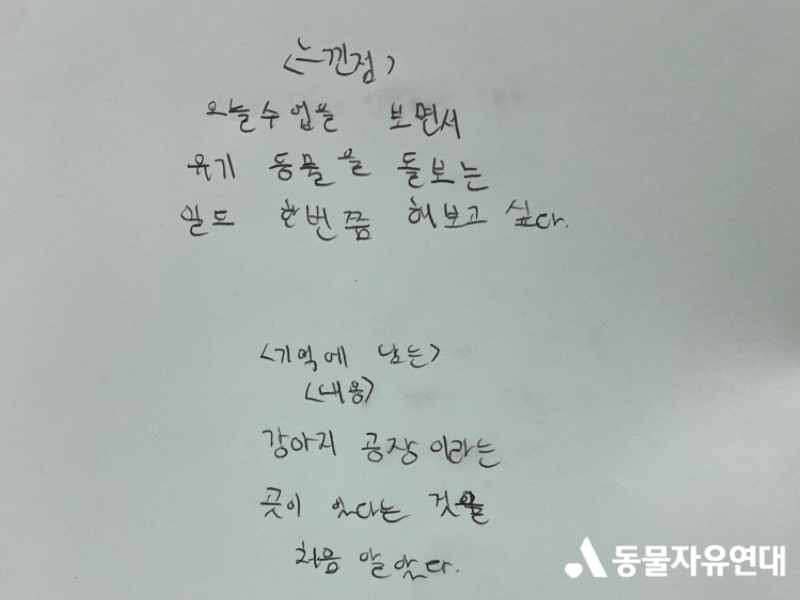 <느낀점>
오늘 수업을 보면서
유기 동물을 돌보는
일도 한번쯤 해보고 싶다.
<기억에 남는>
<내용>
강아지 공장이라는
곳이 있다는 것을
처음 알았다.
동물자유연대